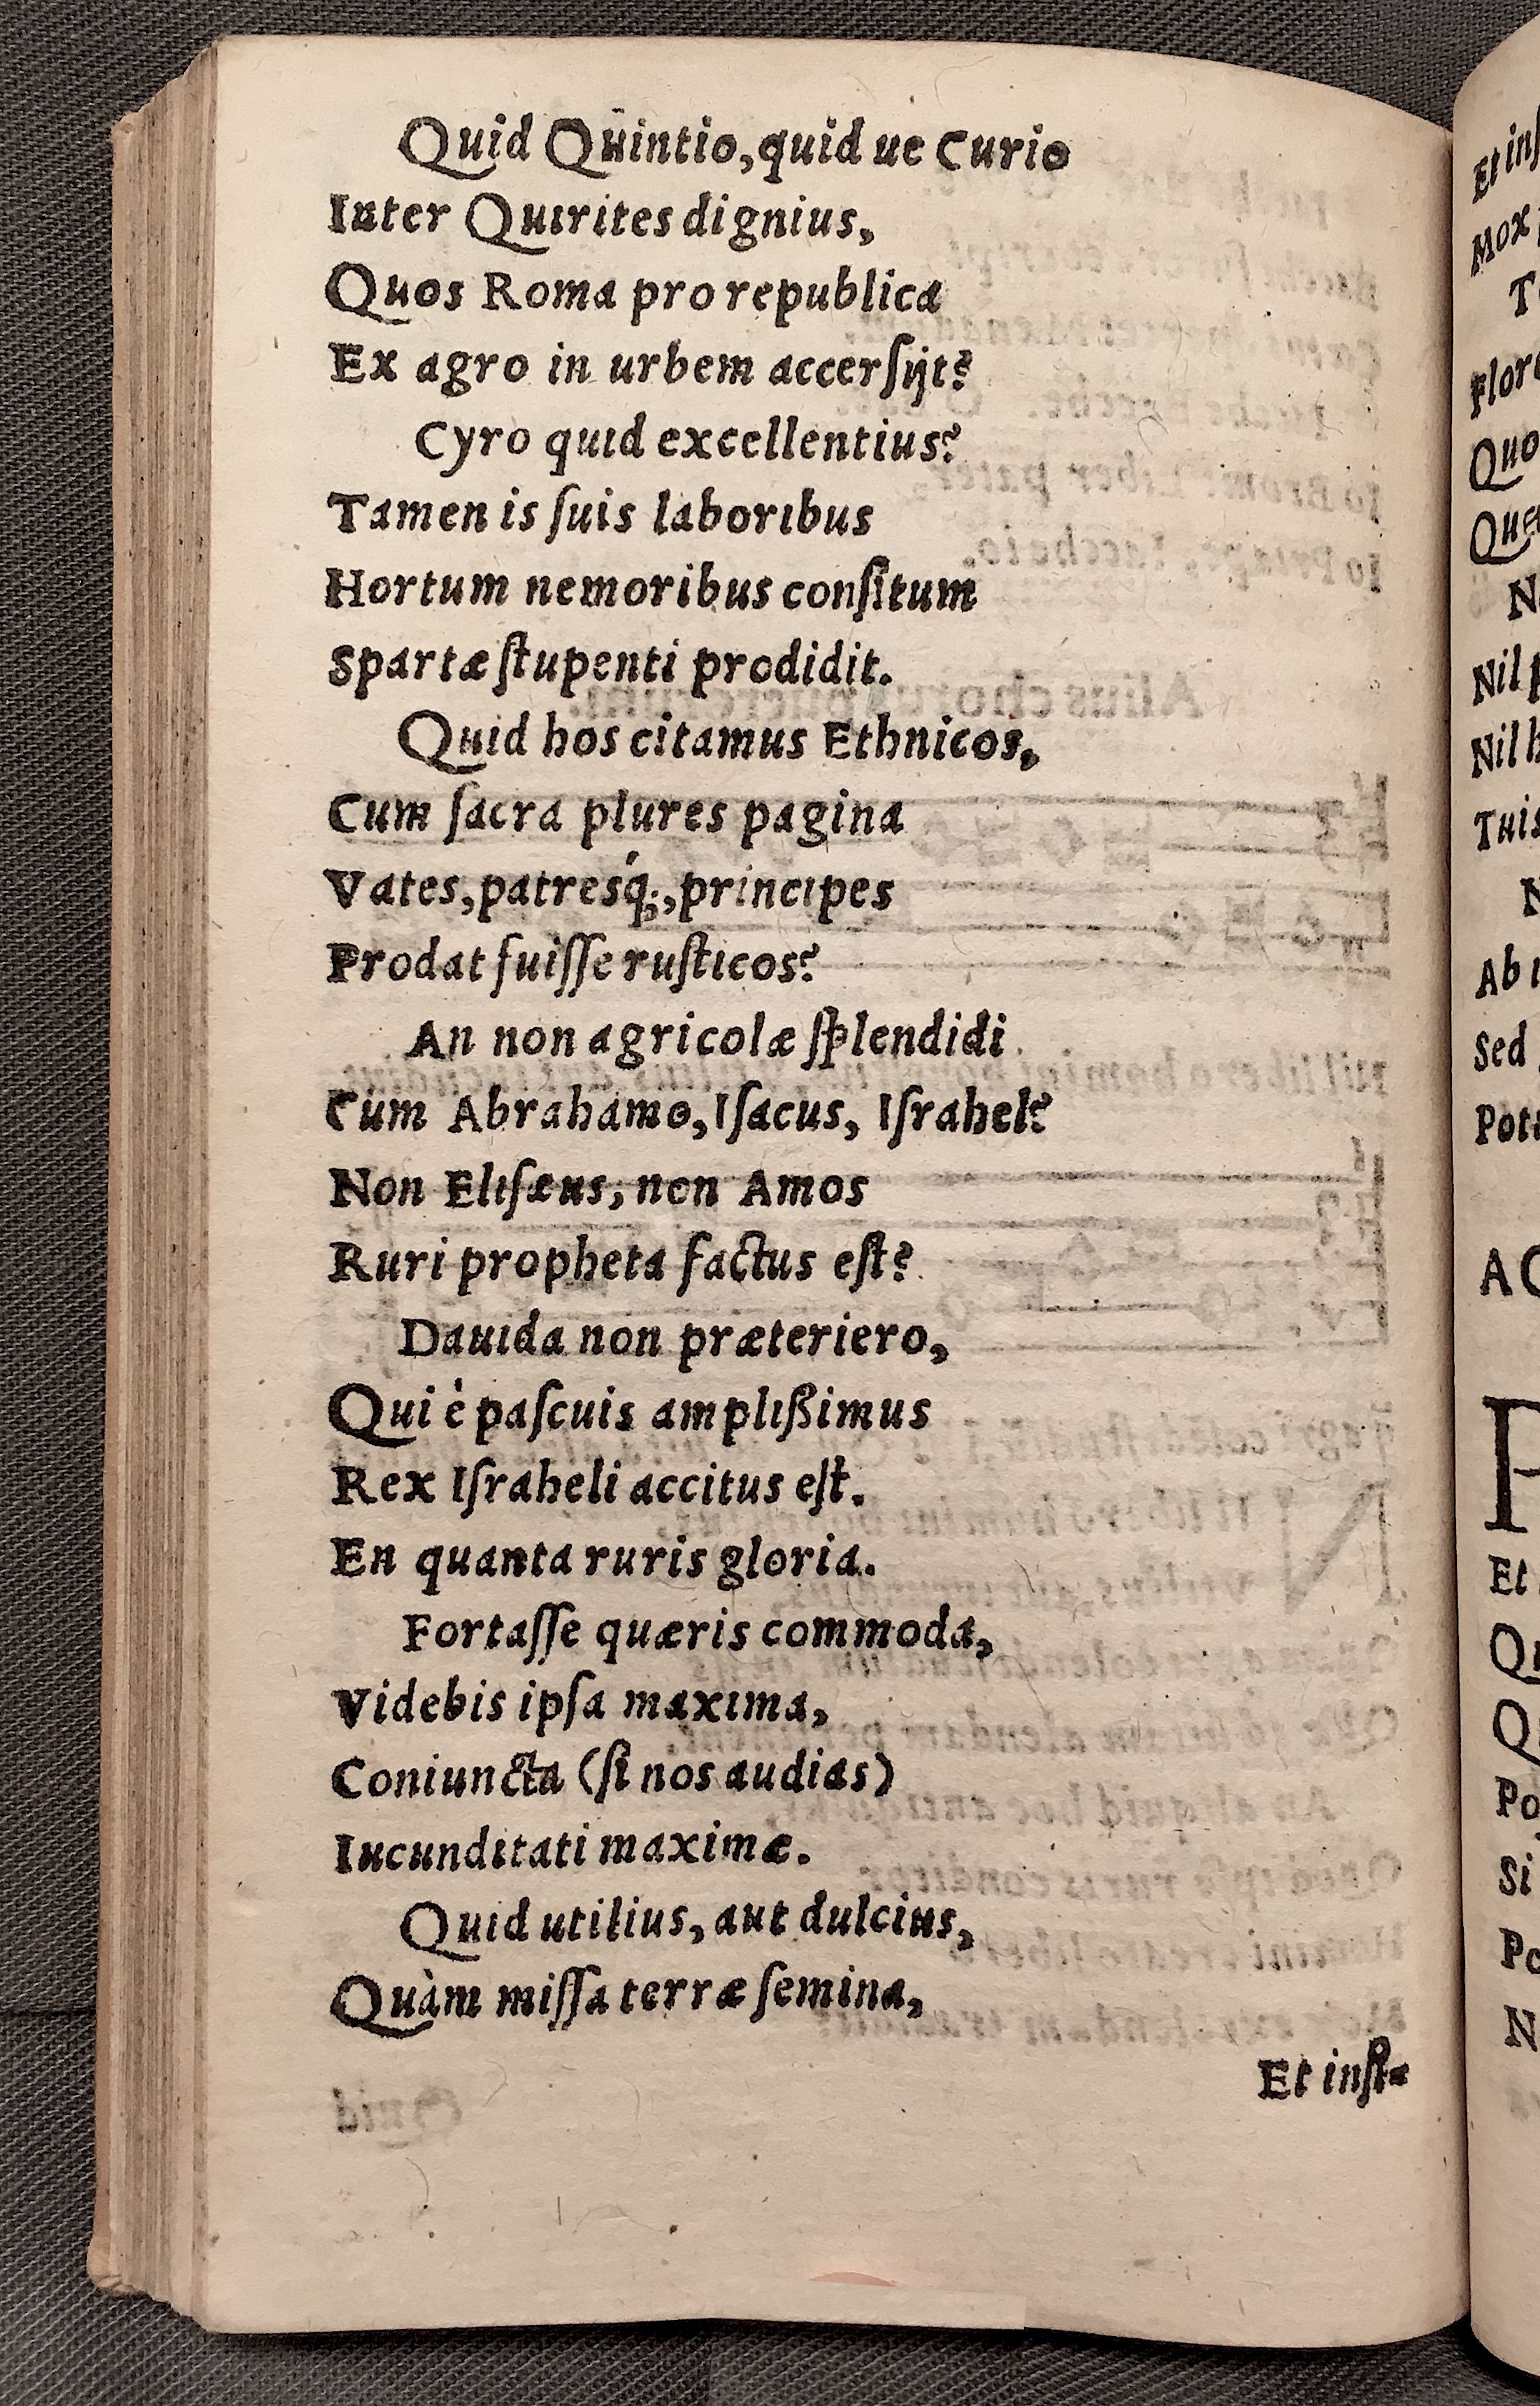 Quid Quintio, quid ue Curio
Inter Quirites dignius,
Quos Roma pro republica
Ex agro in urbem accerſijt?
Cyro quid excellentius?
Tamen is ſuis laboribus
Hortum nemoribus conſitum
Spartæ ſtupenti prodidit.
Quid hos citamus Ethnicos,
Cum ſacra plures pagina
Vates, patresq́;, principes
Prodat fuiſſe ruſticos?
An non agricolæ ſplendidi
Cum Abrahamo, Iſacus, Iſrahel?
Non Eliſæus, non Amos
Ruri propheta factus eſt?
Dauida non præteriero,
Qui è paſcuis amplißimus
Rex Iſraheli accitus eſt.
En quanta ruris gloria.
Fortaſſe quæris commoda,
Videbis ipſa maxima,
Coniuncta (ſi nos audias)
Iucunditati maximæ.
Quid utilius, aut dulcius,
Quàm miſſa terræ ſemina,
Et inſt-
Et inſ
Mox
Flor
Quo
Nil
Nil
Tuis
Ab
Sed
Pot
A
Et
Po
Si